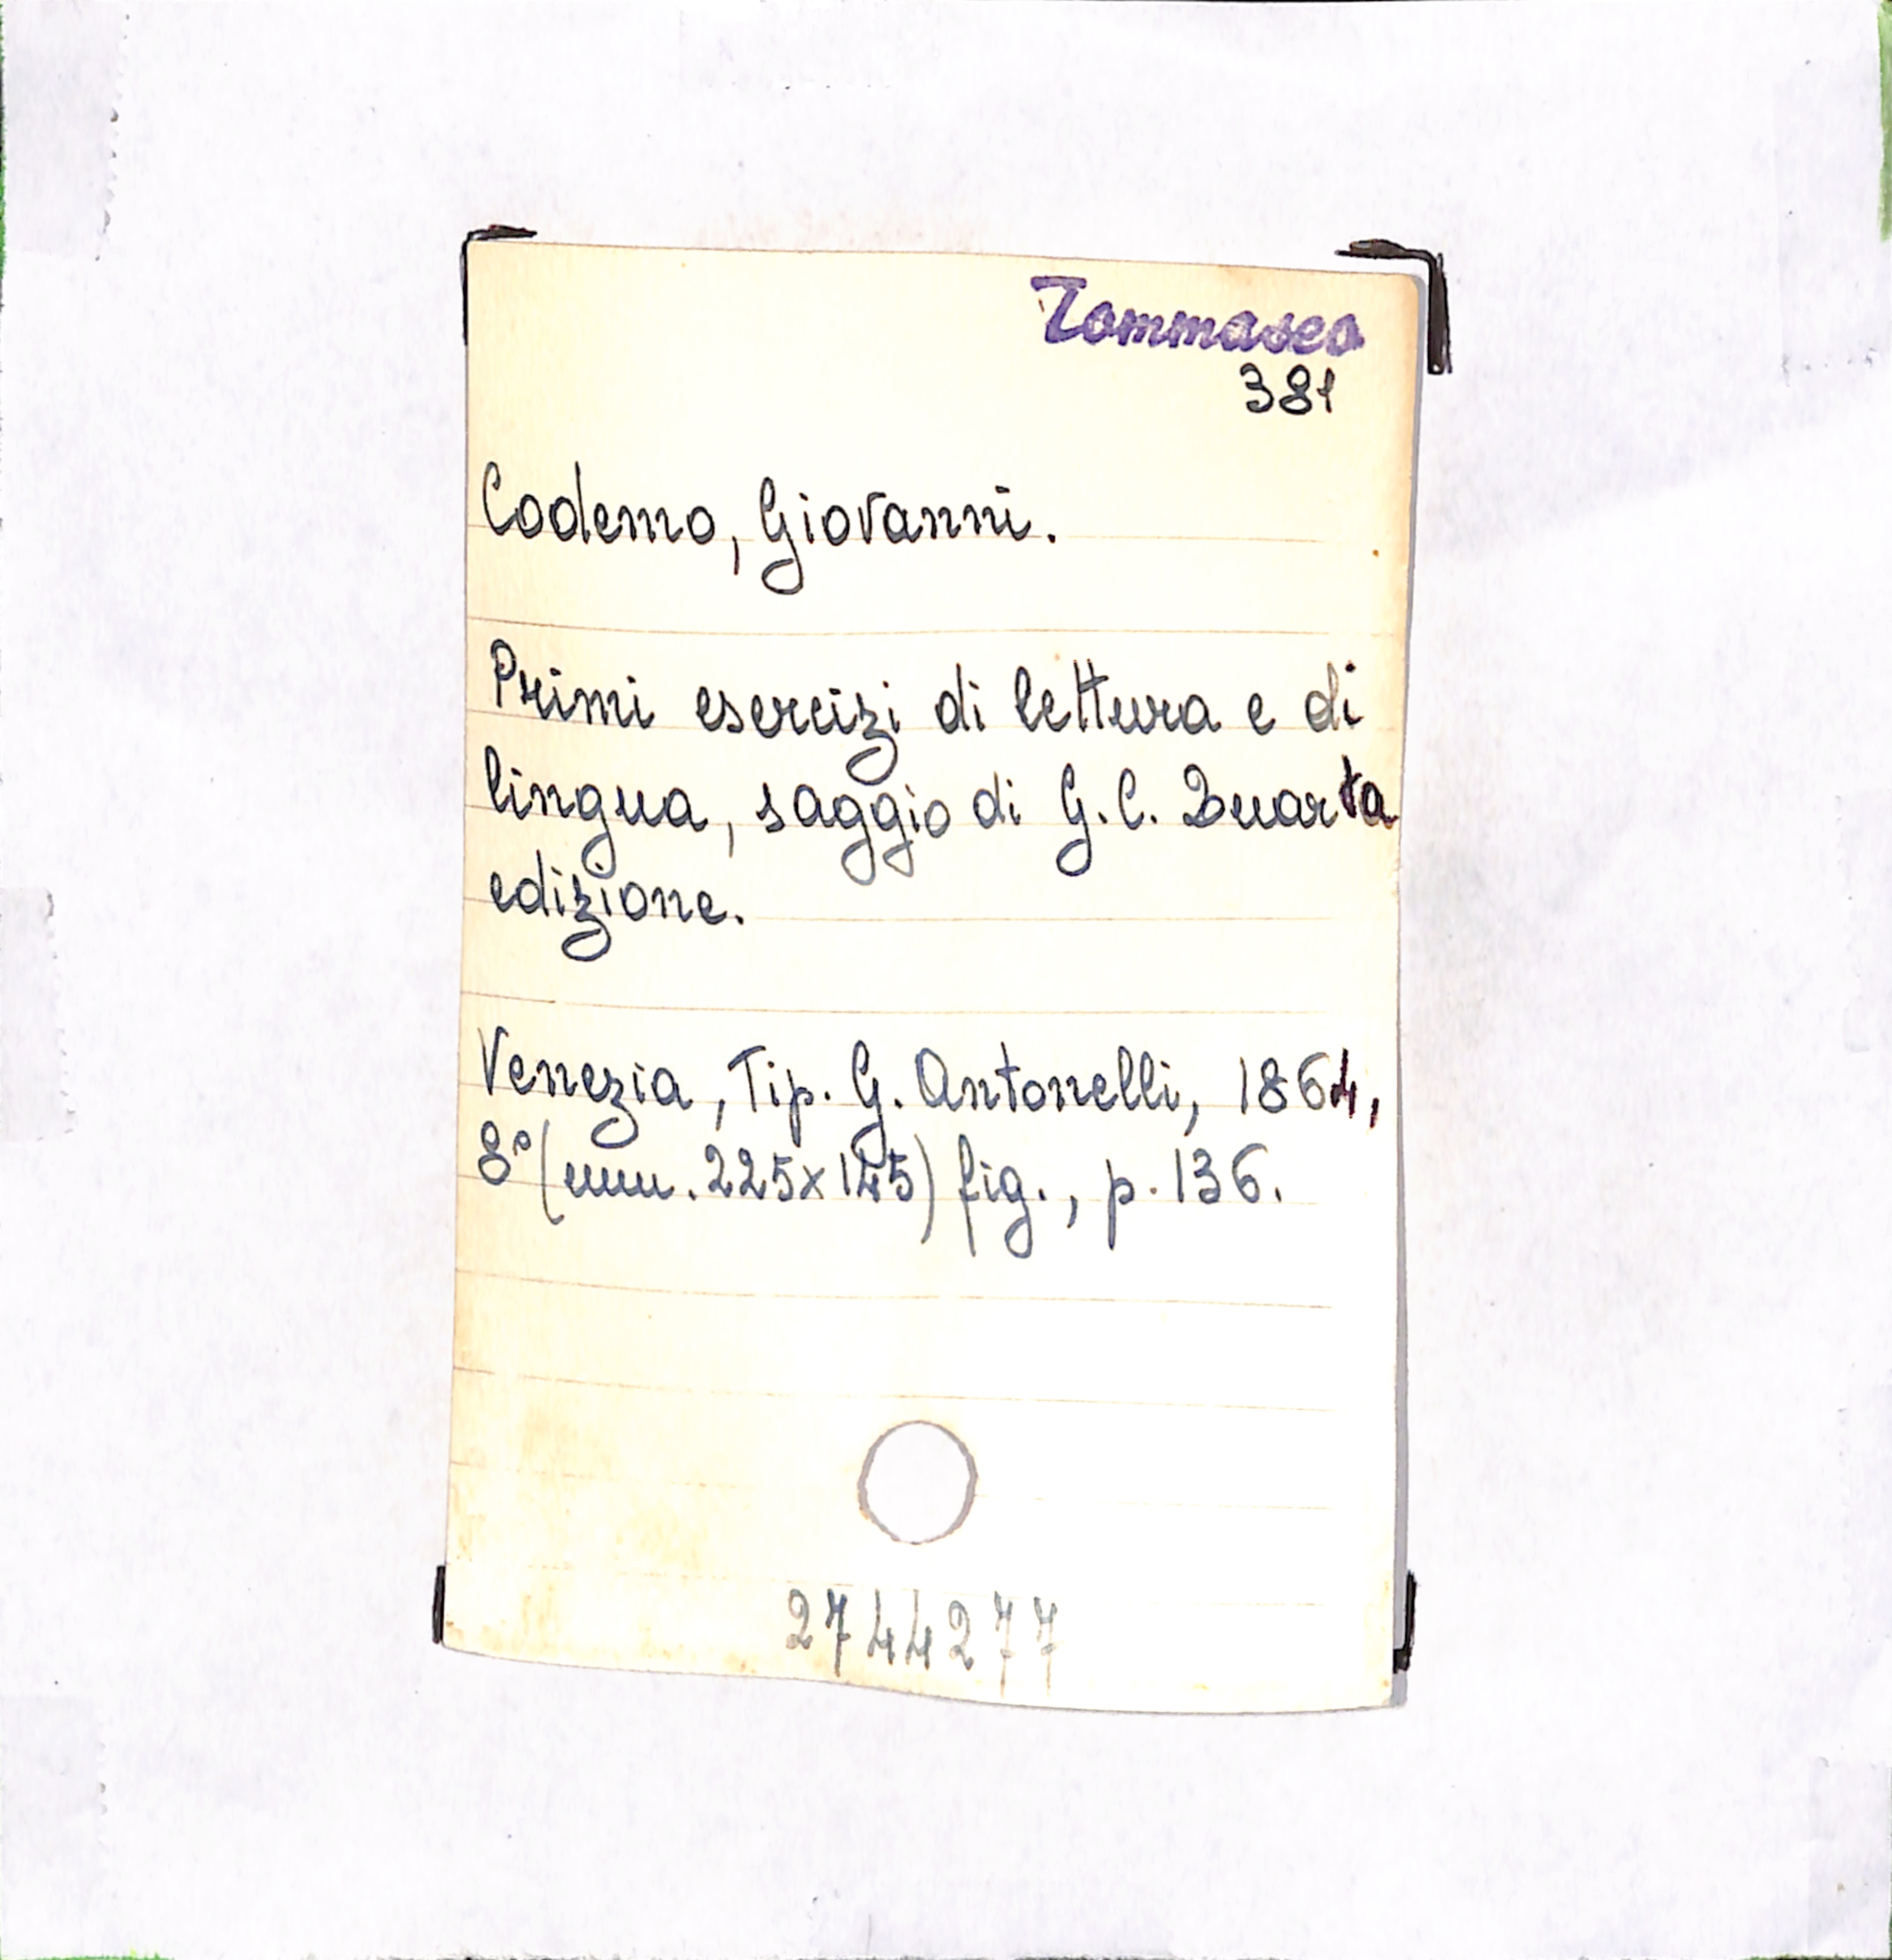 Tommaseo
381
Codemo, Giovanni.
Primi esercizi di lettura e di
lingua, saggio di G. C. Quarta
edizione.
Venezia, Tip. G. Antonelli, 1864,
8° (mm. 225x145) fig., p. 136.
2744277